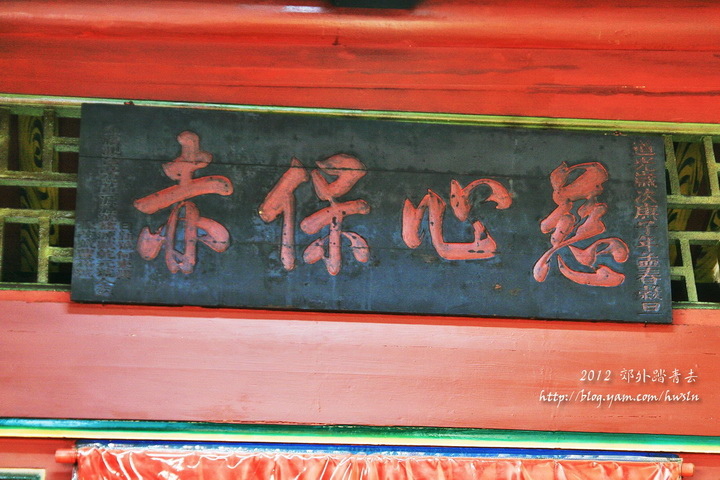 慈心保赤
道光歲次庚子年孟春穀旦
2012 郊外踏青去
http://blog.yam.com/hwsln